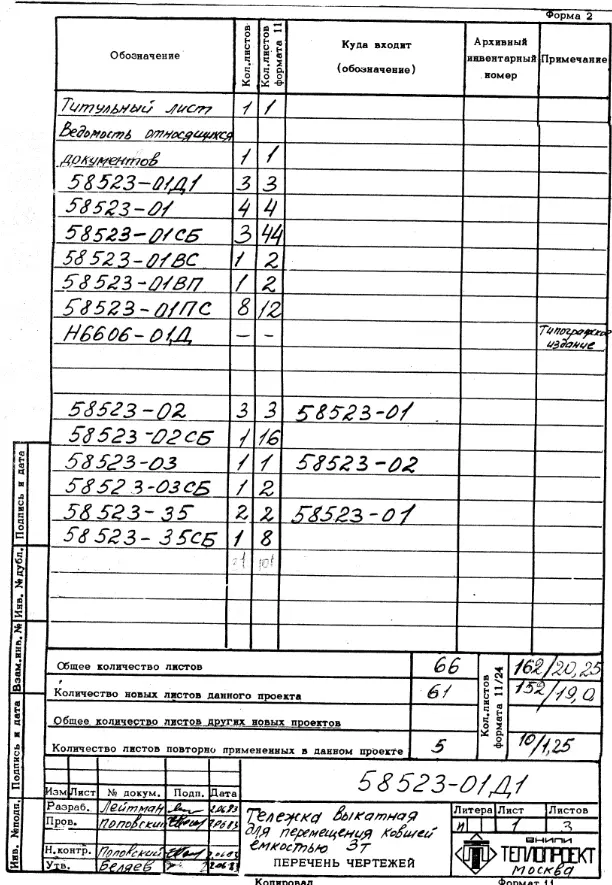 Форма 2
Обозначение
Кол.листов
Кол.листов формата 11
Куда входит
(обозначение)
Архивный
инвентарный
номер
Примечание
Титульный лист 1 1
Ведомость относящихся
документов 1 1
58523-01Д1 3 3
58523-01 4 4
58523-01СБ 3 44
58523-01ВС 1 2
58523-01ВП 1 2
58523-01ПС 8 12
Н6606-01Д — — Типографское
издание
58523-02 3 3 58523-01
58523-02СБ 1 16
58523-03 1 1 58523-02
58523-03СБ 1 2
58523-35 2 2 58523-01
58523-35СБ 1 8
Общее количество листов 66 162/20,25
Количество новых листов данного проекта 61 152/19,0
Общее количество листов других новых проектов
Количество листов повторно примененных в данном проекте 5 10/1,25
Кол.листов
формата 11/24
Подпись и дата
Инв. №дубл.
Взам.инв.№
Подпись и дата
Инв. №подл.
Изм Лист № докум. Подп. Дата
58523-01Д1
Разраб. Лейтман
Пров. Поповский
Н.контр. Поповский
Утв. Беляев
Тележка выкатная
для перемещения ковшей
емкостью 3т
ПЕРЕЧЕНЬ ЧЕРТЕЖЕЙ
Литера Лист Листов
И 1 3
ВНИПИ
ТЕПЛОПРОЕКТ
МОСКВА
Копировал Формат 11